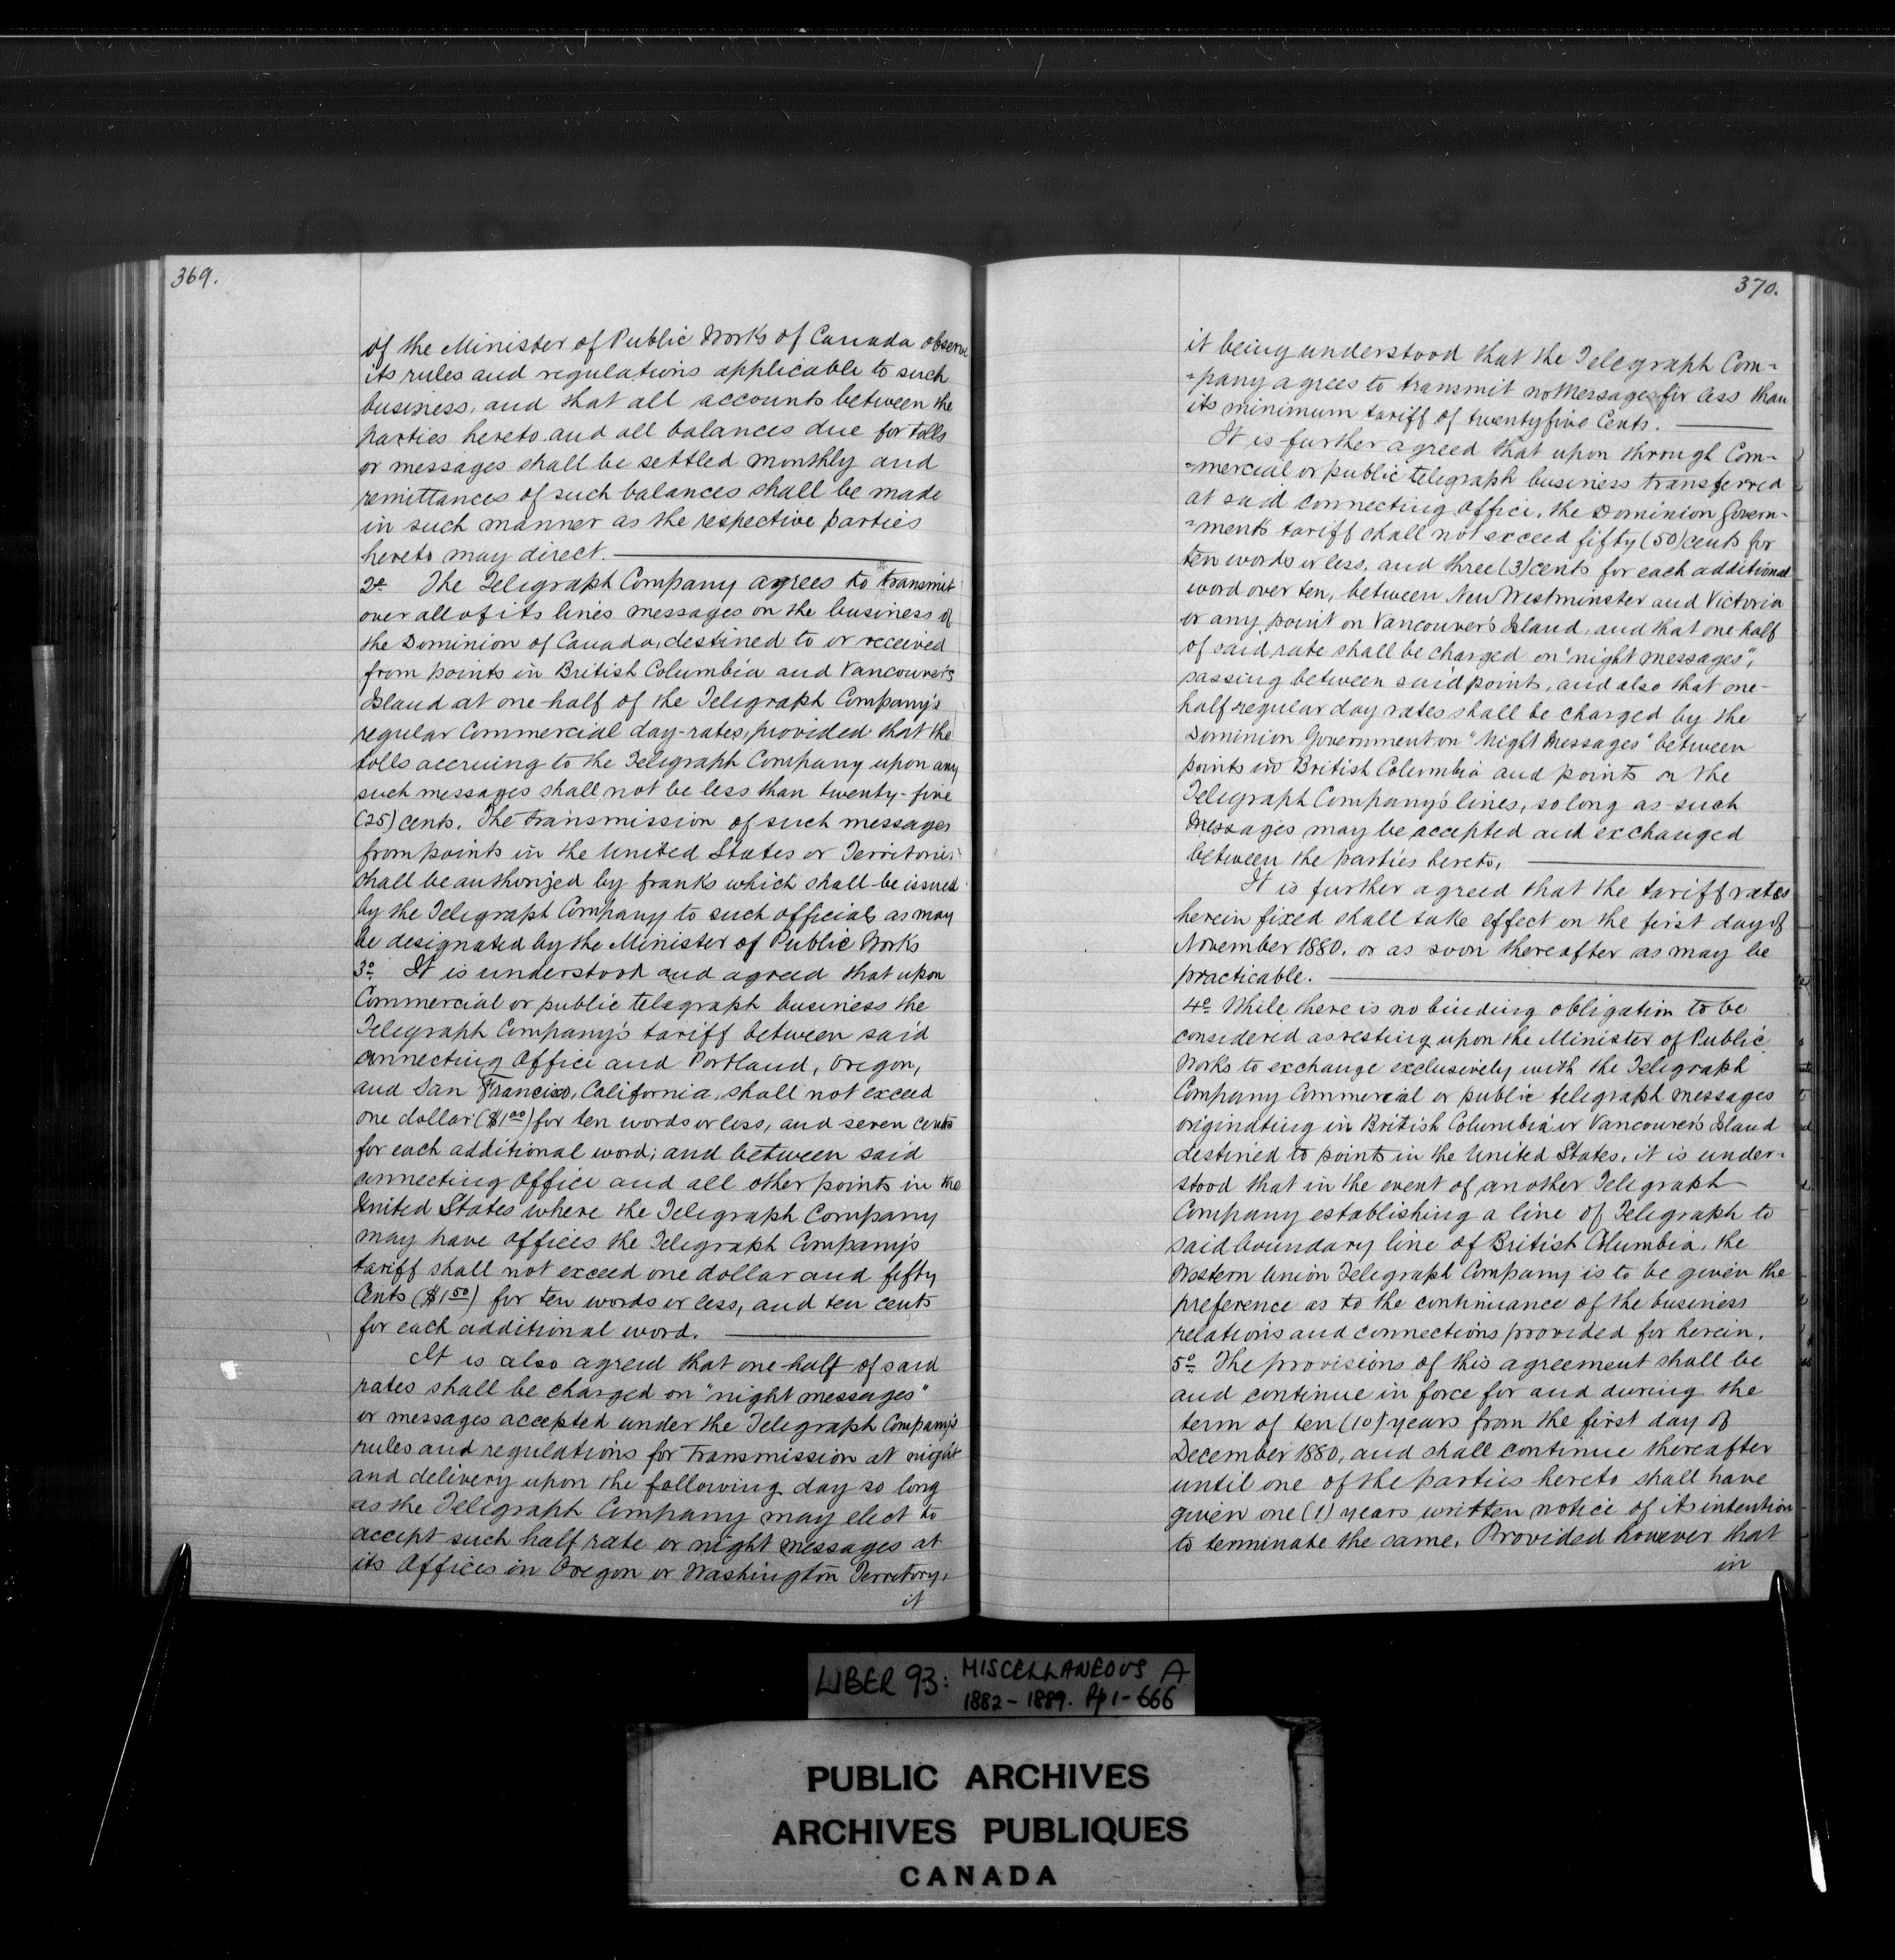 369.
of the Minister of Public Works of Canada observe
its rules and regulations applicable to such
business, and that all accounts between the
parties hereto and all balances due for tolls
or messages shall be settled monthly and
remittances of such balances shall be made
in such manner as the respective parties
hereto may direct.
2o. The Telegraph Company agrees to transmit
over all of its lines messages on the business of
the Dominion of Canada, destined to or received
from points in British Columbia and Vancouver's
Island at one-half of the Telegraph Company's
regular Commercial day-rates, provided that the
tolls accruing to the Telegraph Company upon any
such messages shall not be less than twenty-five
(25) cents. The transmission of such messages
from points in the United States or Territories
shall be authorized by franks which shall be issued
by the Telegraph Company to such officials as may
be designated by the Minister of Public Works
3o. It is understood and agreed that upon
Commercial or public telegraph business the
Telegraph Company's tariff between said
connecting Office and Portland, Oregon,
and San Francisco, California, shall not exceed
one dollar ($1 00) for ten words or less, and seven cents
for each additional word; and between said
connecting Office and all other points in the
United States where the Telegraph Company
may have offices the Telegraph Company's
tariff shall not exceed one dollar and fifty
Cents ($1 50) for ten words or less, and ten cents
for each additional word.
It is also agreed that one-half of said
rates shall be charged on "night messages"
or messages accepted under the Telegraph Company's
rules and regulations for transmission at night
and delivery upon the following day so long
as the Telegraph Company may elect to
accept such half rate or night messages at
its Offices in Oregon or Washington Territory,
it
370.
it being understood that the Telegraph Com=
=pany agrees to transmit no Messages for less than
its minimum tariff of twentyfive Cents.
It is further agreed that upon through Com-
=mercial or public telegraph business transferred
at said connecting Office, the Dominion Govern-
=ments tariff shall not exceed fifty (50) cents for
ten words or less, and three (3) cents for each additional
word over ten, between New Westminster and Victoria
or any point on Vancouver's Island, and that one half
of said rate shall be charged on "night messages",
passing between said points, and also that one-
half regular day rates shall be charged by the
Dominion Government on "Night Messages" between
points in British Columbia and points on the
Telegraph Company's lines, so long as such
Messages may be accepted and exchanged
between the parties hereto,
It is further agreed that the tariff rates
herein fixed shall take effect on the first day of
November 1880, or as soon thereafter as may be
practicable.
4o. While there is no binding obligation to be
considered as resting upon the Minister of Public
Works to exchange exclusively with the Telegraph
Company Commercial or public telegraph messages
originating in British Columbia or Vancouver's Island
destined to points in the United States, it is under-
stood that in the event of another Telegraph
Company establishing a line of Telegraph to
said boundary line of British Columbia, the
Western Union Telegraph Company is to be given the
preference as to the continuance of the business
relations and connections provided for herein.
5o. The provisions of this agreement shall be
and continue in force for and during the
term of ten (10) years from the first day of
December 1880, and shall continue thereafter
until one of the parties hereto shall have
given one (1) years written notice of its intention
to terminate the same. Provided however that
in
LIBER 93: MISCELLANEOUS A
1882-1889. Pp 1-666
PUBLIC ARCHIVES
ARCHIVES PUBLIQUES
CANADA